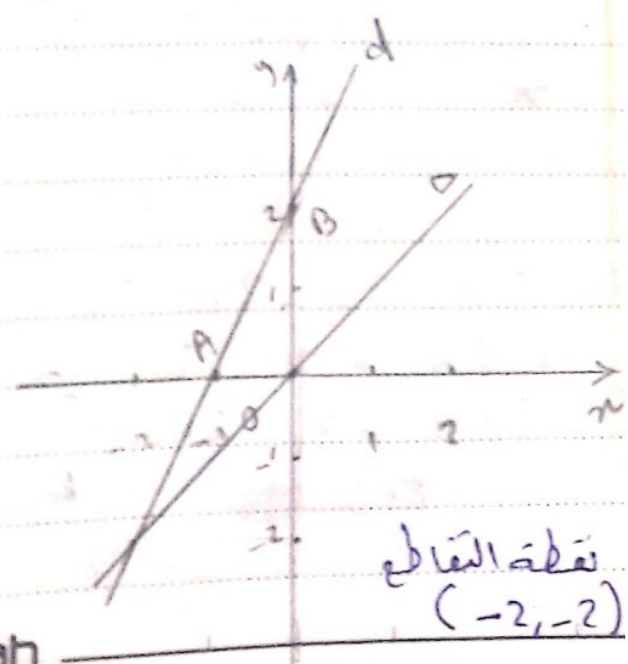 d
y
Δ
2
B
1
A
-2 -1 0
1 2
x
-1
-2
نقطة التقاطع
(-2,-2)